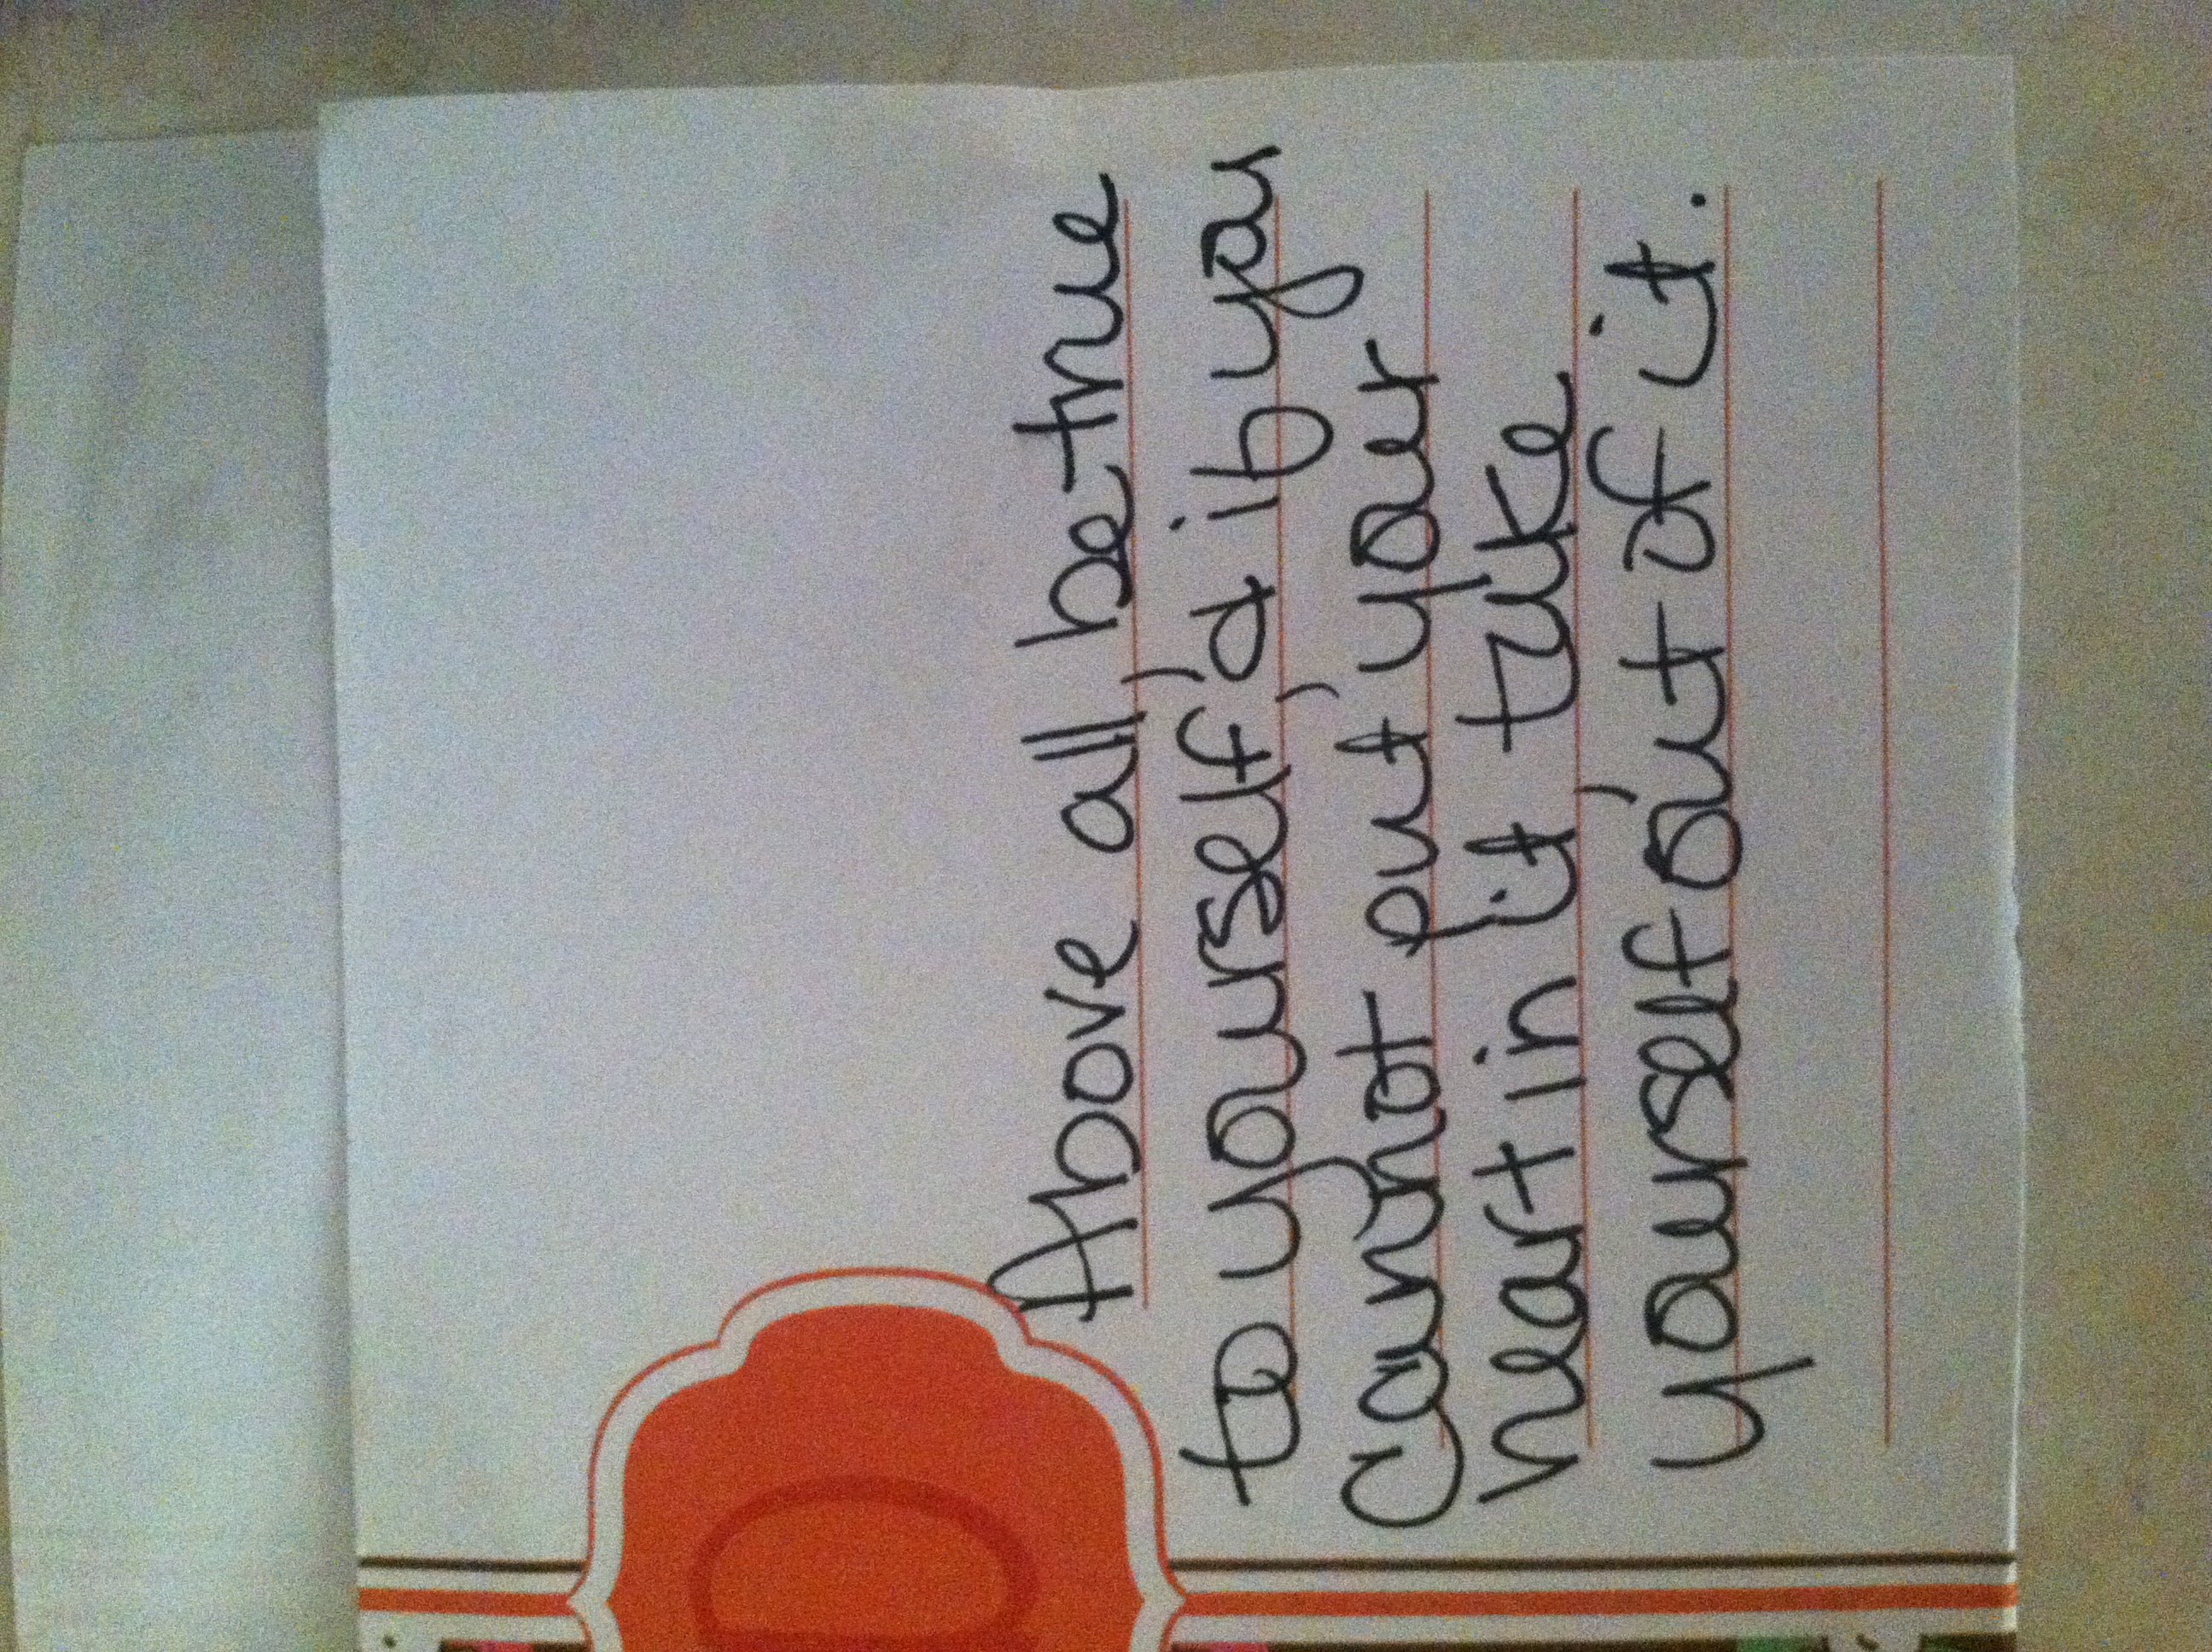 Above all, be true
to yourself, & if you
cannot put your
heart in it, take
yourself out of it.